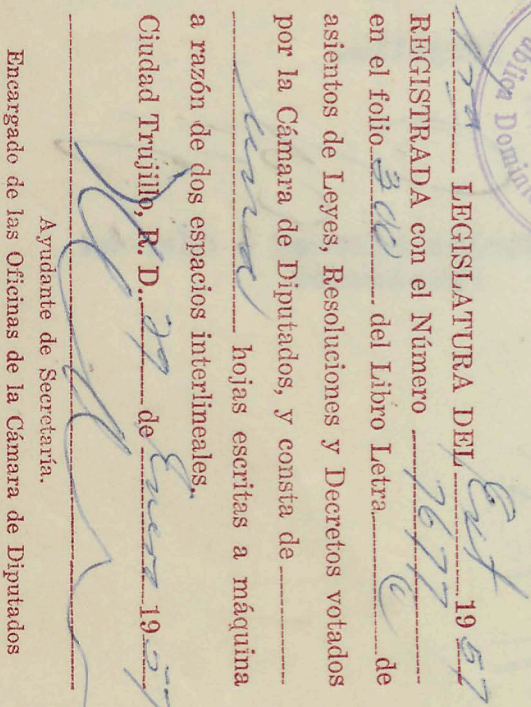 ública Domin
LEGISLATURA DEL Ext 1957
REGISTRADA con el Número 7677
en el folio 300 del Libro Letra C de
asientos de Leyes, Resoluciones y Decretos votados
por la Cámara de Diputados, y consta de
hojas escritas a máquina
a razón de dos espacios interlineales.
Ciudad Trujillo, R. D. 29 de Enero 1957
Ayudante de Secretaría.
Encargado de las Oficinas de la Cámara de Diputados